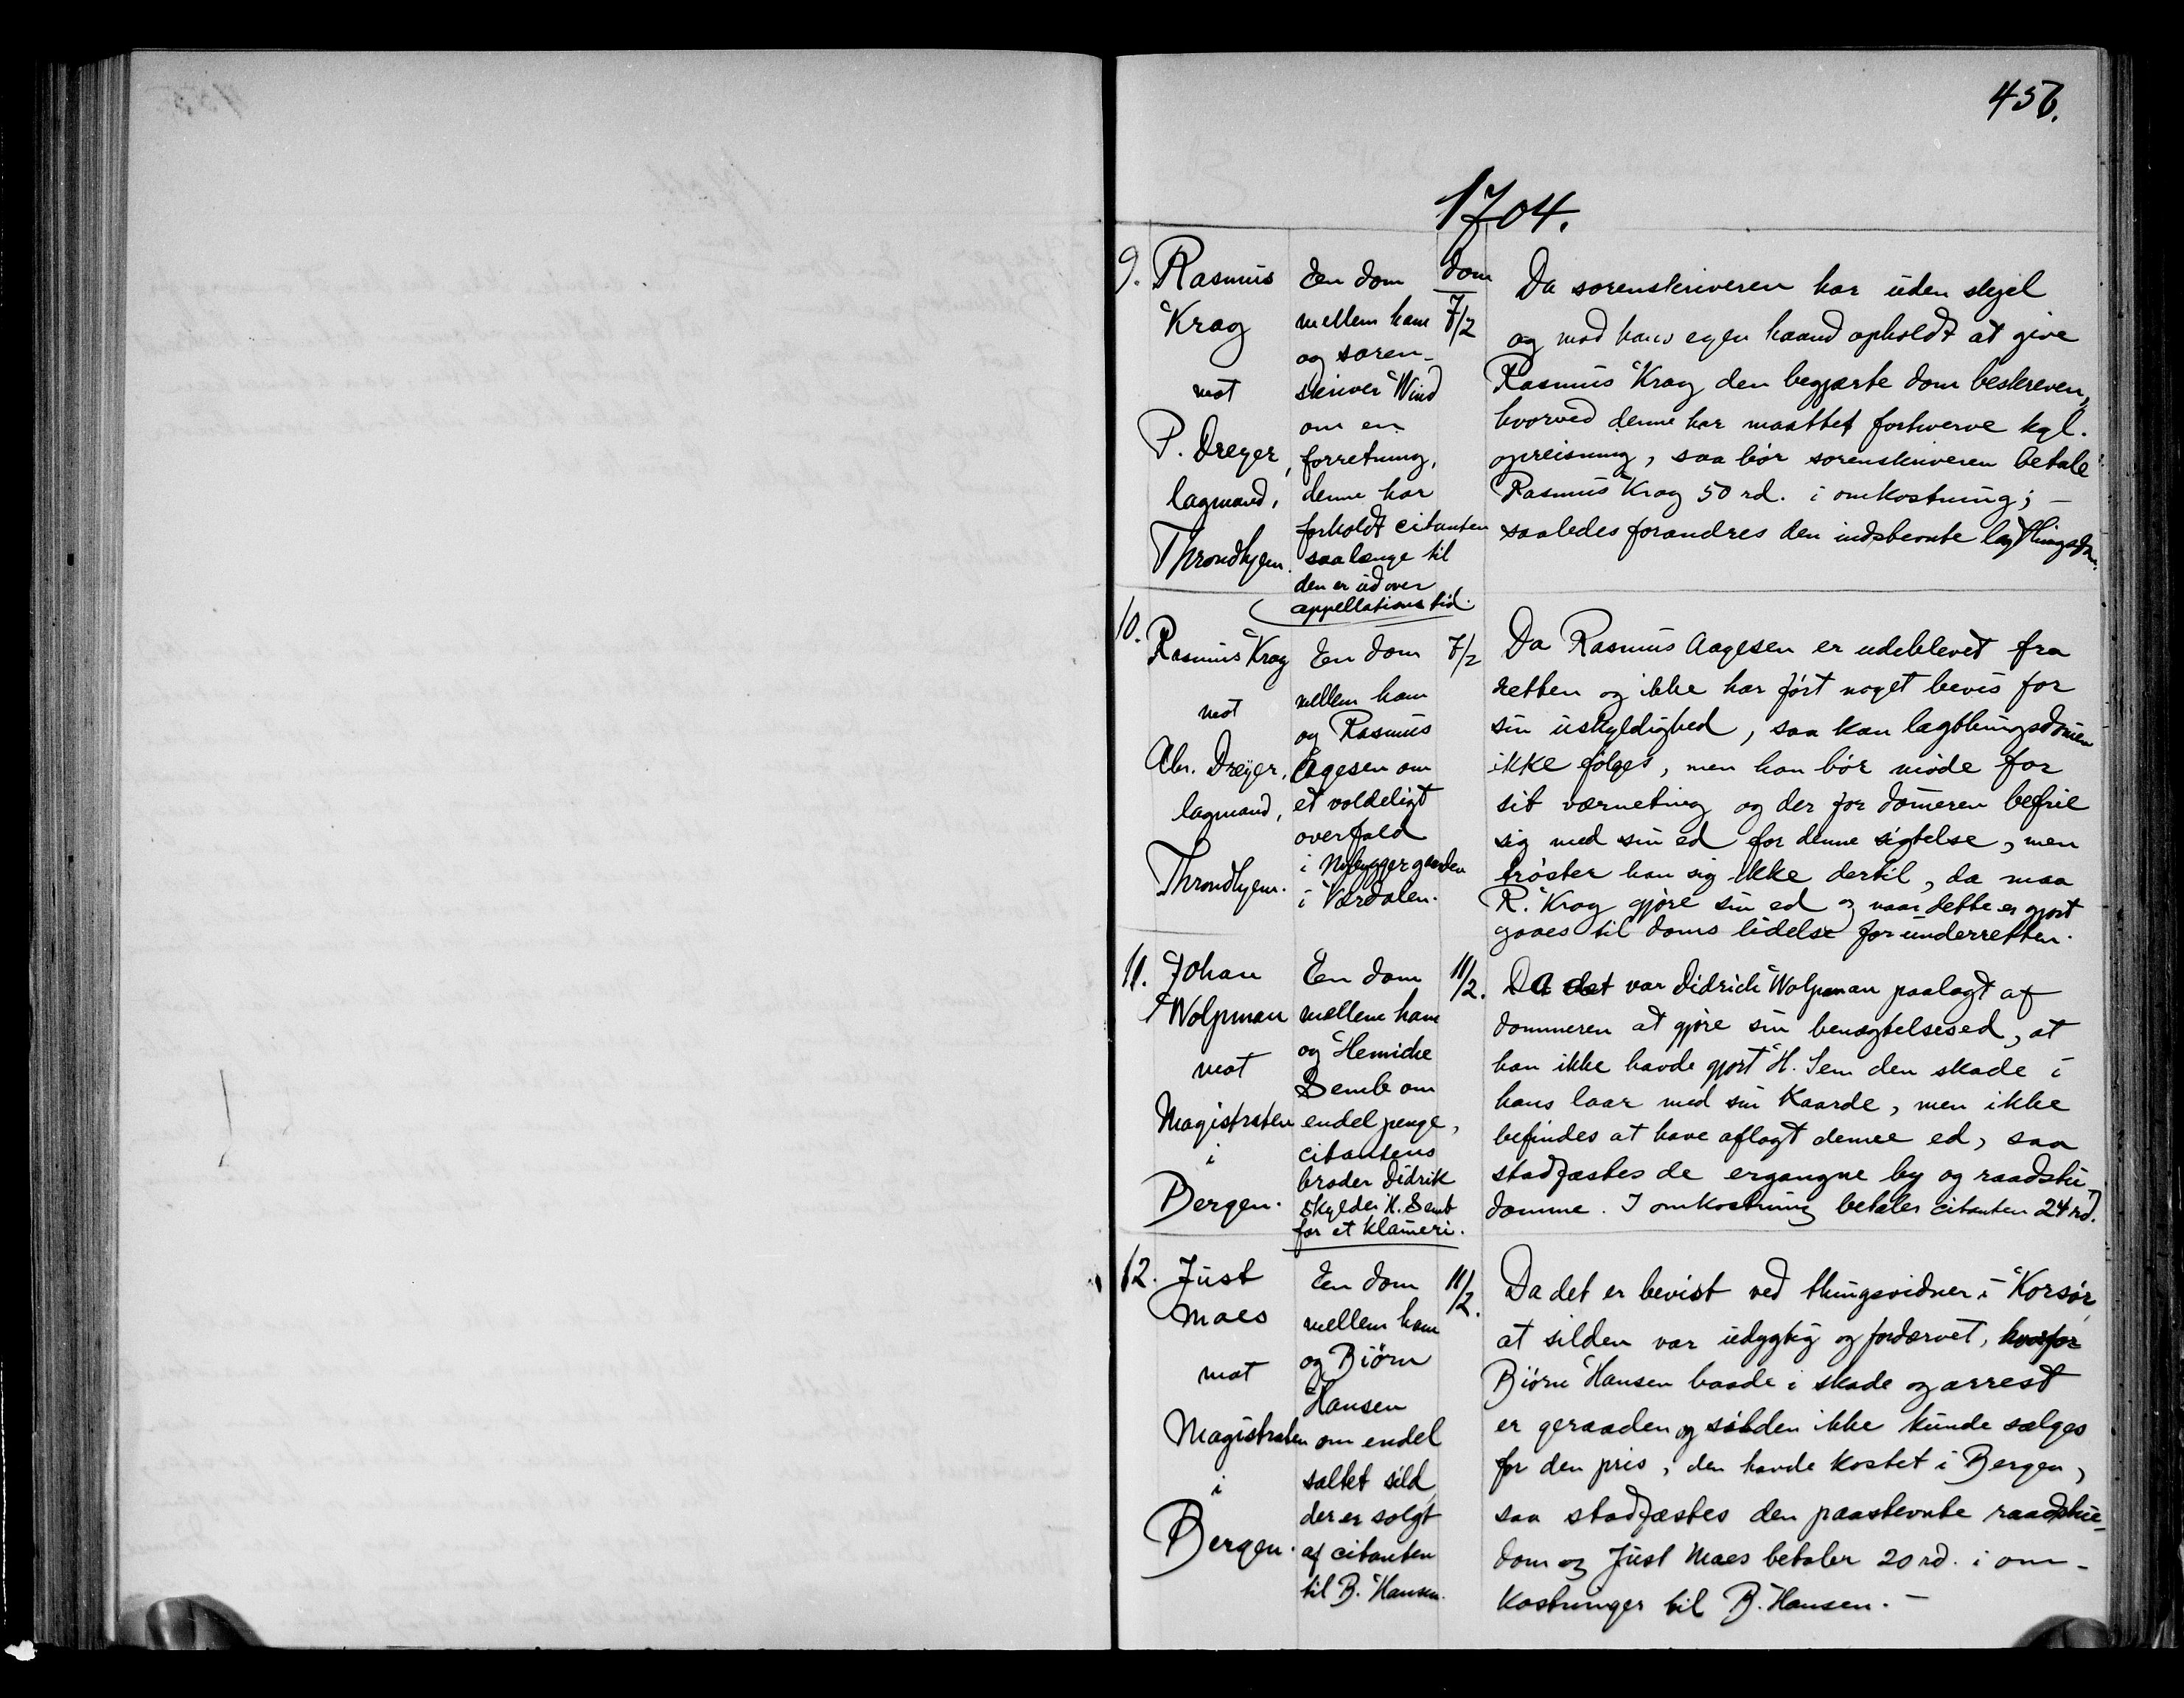 456.
1704.
9. Rasmus
Krag
mot
P. Dreyer,
lagmand,
Throndhjem.
En dom
mellem ham
og soren-
skriver Wind
om en
forretning,
denne har
forholdt citanten
saalænge til
den er ud over
appellations tid.
dom
7/2
Da sorenskriveren har uden skjel
og mod hans egen haand opholdt at give
Rasmus Krag den begjærte dom beskreven,
hvorved denne har maattet forhverve kgl.
opreisning, saa bør sorenskriveren betale
Rasmus Krag 50 rd. i omkostning; –
saaledes forandres den indstevnte lagthingsdom.
10.
Rasmus Krag
mot
Abr. Dreyer,
lagmand,
Throndhjem.
En dom
mellem ham
og Rasmus
Agesen om
et voldeligt
overfald
i Nybyggergaarden
i Værdalen.
7/2
Da Rasmus Aagesen er udeblevet fra
retten og ikke har ført noget bevis for
sin uskyldighed, saa kan lagthingsdomen
ikke følges, men han bør møde for
sit værneting og der for domeren befrie
sig med sin ed for denne sigtelse, men
trøster han sig ikke dertil, da maa
R. Krag gjøre sin ed og naar dette er gjort
gaaes til doms lidelse for underretten.
11. Johan
Wolpman
mot
Magistraten
i
Bergen.
En dom
mellem ham
og Hemiche
Semb om
endel penge,
citantens
broder Didrik
skylder H. Semb
for et klameri.
11/2.
Da det var Didrich Wolpman paalagt af
dommeren at gjøre sin benægtelsesed, at
han ikke havde gjort H. Sem den skade i
hans laar med sin Kaarde, men ikke
befindes at have aflagt denne ed, saa
stadfæstes de ergangne by og raadstu-
domme. I omkostning betaler citanten 24 rd.
12. Just
Maes
mot
Magistraten
i
Bergen.
En dom
mellem ham
og Biørn
Hansen
om endel
saltet sild,
der er solgt
af citanten
til B. Hansen.
11/2.
Da det er bevist ved thingsvidner i Korsør,
at silden var udygtig og fordærvet, hvorfor
Biørn Hansen baade i skade og arrest
er geraaden og silden ikke kunde sælges
for den pris, den havde kostet i Bergen,
saa stadfæstes den paastevnte raadstue-
dom og Just Maes betaler 20 rd. i om-
kostninger til B. Hansen. –